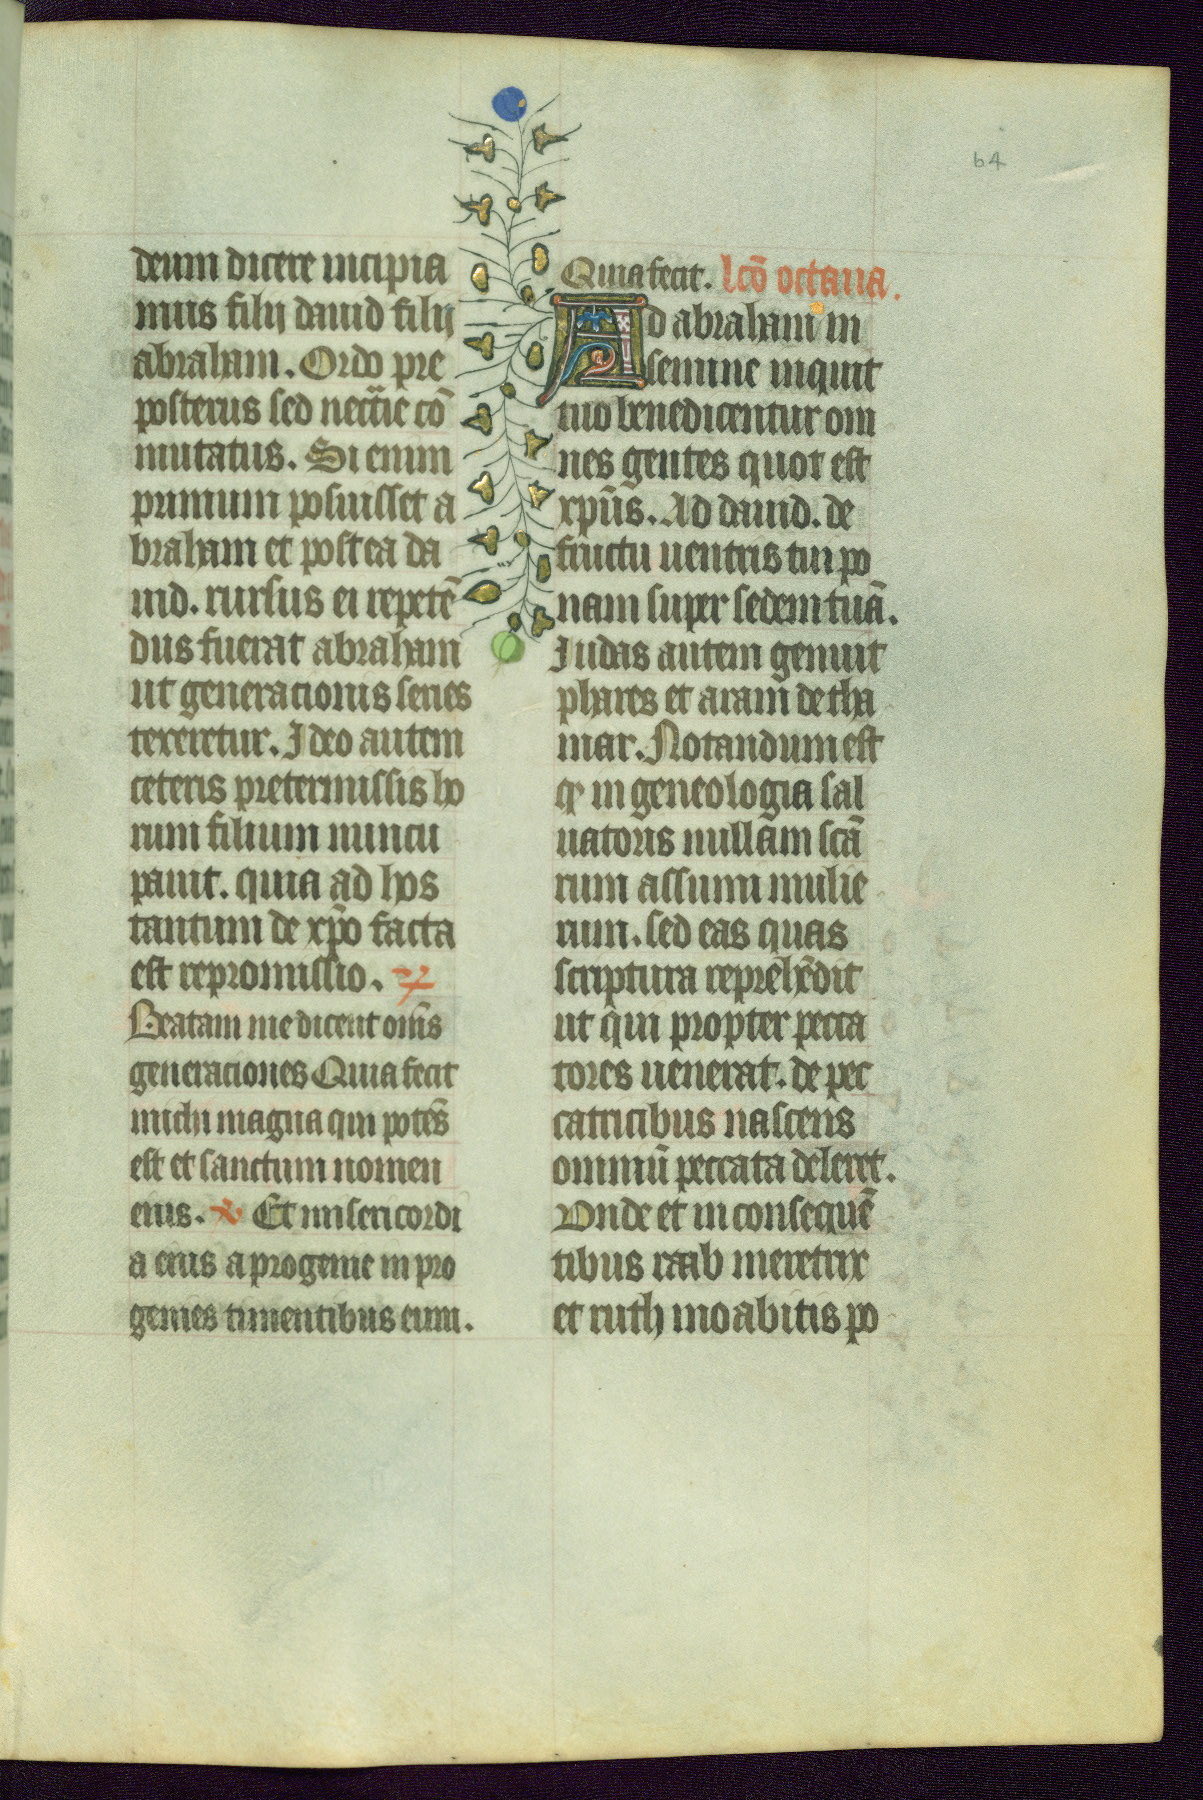 64
deum dicere incipia
mus filij dauid filij
abraham. Ordo pre
posterus sed nec̄rie cō
mutatus. Si enim
primum posuisset a
braham et postea da
uid. rursus ei repetē
dus fuerat abraham
ut generacionis series
texeretur. Ideo autem
ceteris pretermissis ho
rum filium nuncu
pauit. quia ad hos
tantum de xp̄o facta
est repromissio. ℟
Beatam me dicent om̄s
generaciones Quia fecit
michi magna qui potēs
est et sanctum nomen
eius. ℣ Et misericordi
a eius a progenie in pro
genies timentibus eum.
Quia fecit. lcō octaua.
Ad abraham in
semine inquit
tuo benedicentur om
nes gentes quot est
xpūs. Ad dauid. de
fructu uentris tui po
nam super sedem tuā.
Iudas autem genuit
phares et aram de tha
mar. Notandum est
ꝙ in geneologia sal
uatoris nullam scā
rum assumi mulie
rum. sed eas quas
scriptura reprehēdit
ut qui propter pecca
tores uenerat. de pec
catricibus nascens
ommū peccata deleret.
Vnde et in consequē
tibus raab meretrix
et ruth moabitis po